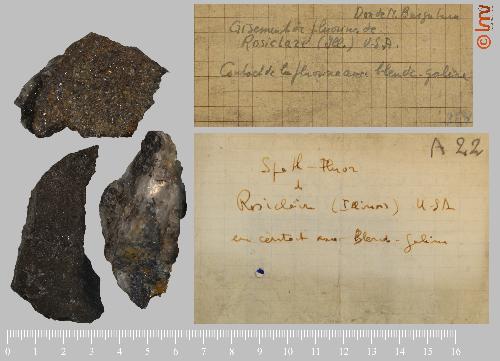 Don de M.
Gisement de fluorine de
Rosiclare (Ill.) U.S.A.
Contact de la fluorine avec blende-galène
A 22
Spath-Fluor
de
Rosiclaire (Illinois) USA
en contact avec Blende-galène
©lmv
0 1 2 3 4 5 6 7 8 9 10 11 12 13 14 15 16